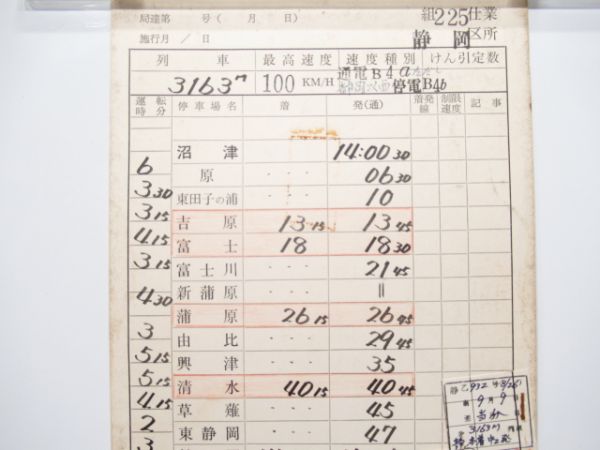 局達第　号（　月　日）
施行月／日
組225仕業
静岡区所
列車　最高速度　速度種別　けん引定数
3163M　100 KM/H　通電B4a
停電B46
運転時分　停車場名　着　発(通)　着発線　制限速度　記事
沼津　14:00 30
6
原　・・・　06 30
3 30
東田子の浦　・・・　10
3 15
吉原　13 15　13 45
4 15
富士　18　18 30
3 15
富士川　・・・　21 45
新蒲原　・・・　〃
4 30
蒲原　26 15　26 45
3
由比　・・・　29 45
5 15
興津　・・・　35
5 15
清水　40 15　40 45
4 15
草薙　・・・　45
2
東静岡　・・・　47
3
9月9日
3163M